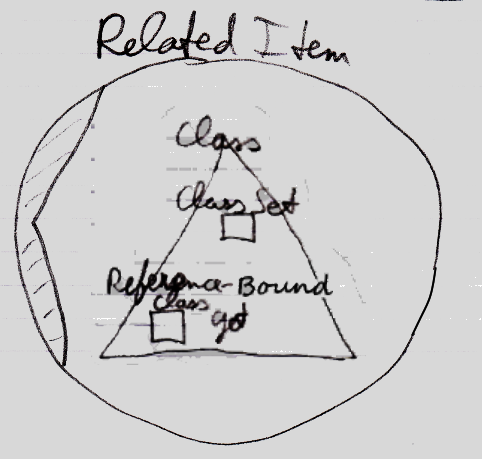 Related Item
Class
Class Set
Reference-Bound
Class get